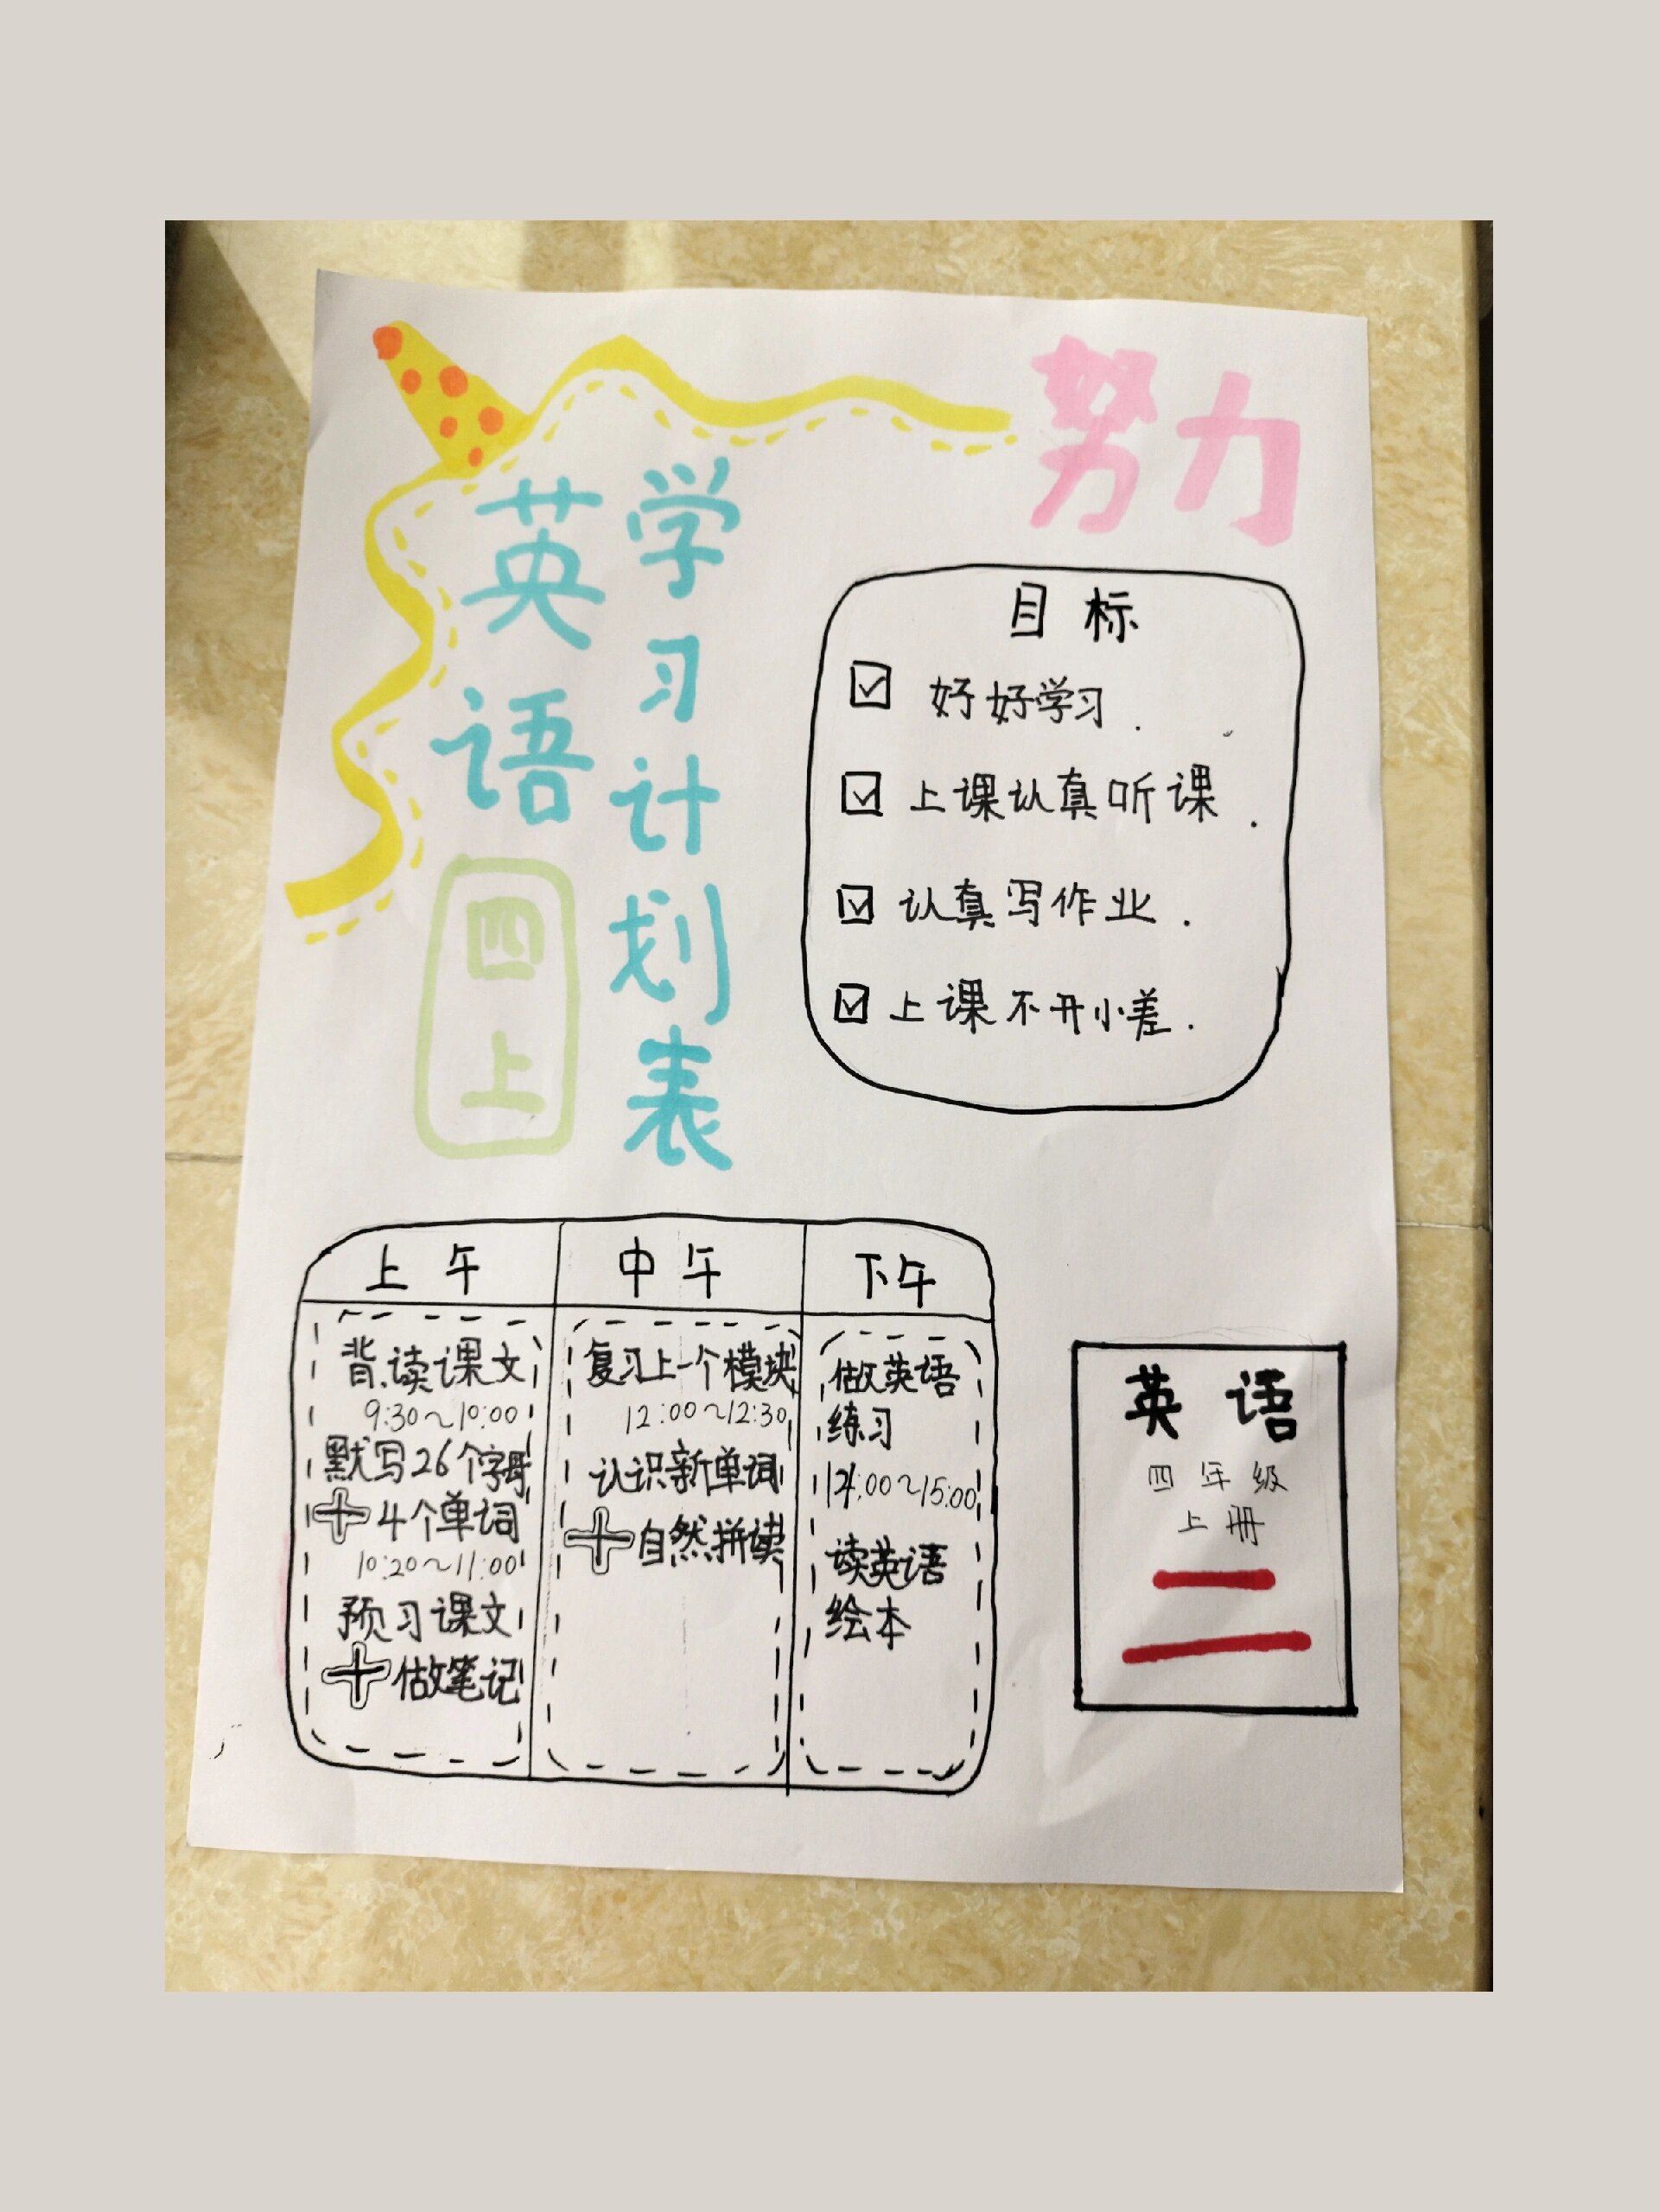 努力
英语
学习计划表
四上
目标
好好学习.
上课认真听课.
认真写作业.
上课不开小差.
上午
背读课文
9:30~10:00
默写26个字母
+4个单词
10:20~11:00
预习课文
+做笔记
中午
复习上一个模块
12:00~12:30
认识新单词
+自然拼读
下午
做英语
练习
14:00~15:00
读英语
绘本
英语
四年级
上册